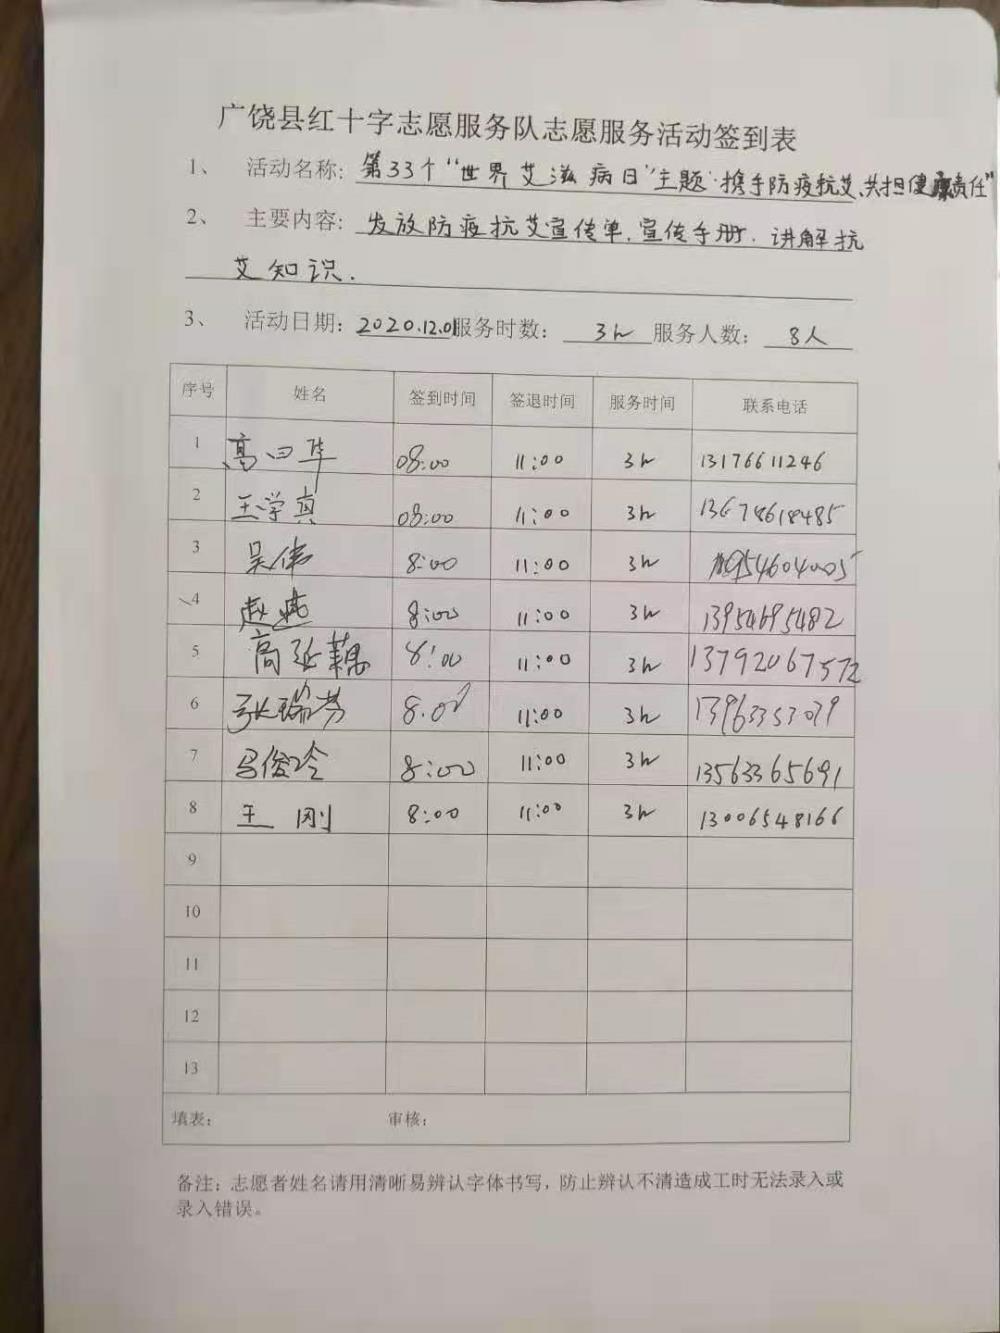 广饶县红十字志愿服务队志愿服务活动签到表
1、 活动名称: 第33个“世界艾滋病日”主题“携手防疫抗艾、共担健康责任”
2、 主要内容: 发放防疫抗艾宣传单、宣传手册、讲解抗
艾知识.
3、 活动日期: 2020.12.01 服务时数: 3h 服务人数: 8人
序号 姓名 签到时间 签退时间 服务时间 联系电话
1 高曰华 08:00 11:00 3h 13176611246
2 王学真 08:00 11:00 3h 13678618485
3 吴伟 8:00 11:00 3h
4 赵燕 8:00 11:00 3h 13954695482
5 高延 8:00 11:00 3h 13792067572
6 张瑞芳 8.00 11:00 3h 13963353079
7 马俊玲 8:00 11:00 3h 13563365691
8 王刚 8:00 11:00 3h 13006548166
9
10
11
12
13
填表: 审核:
备注: 志愿者姓名请用清晰易辨认字体书写, 防止辨认不清造成工时无法录入或
录入错误。